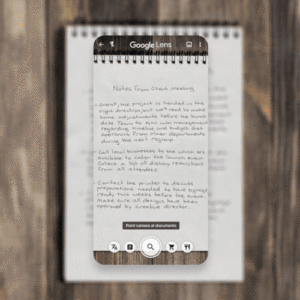 Google Lens
Notes from client meeting
- Overall, the project is headed in the
right direction, but we'll need to make
some adjustments before the launch
date. Team to sync with management
regarding timeline and budget. Get
approvals from other departments
during the next meetup.
- Call local businesses to see which are
available to cater the launch event.
Collect a list of dietary restrictions
from all attendees.
- Contact the printer to discuss
preparations needed to have signage
ready two weeks before the event.
Make sure all designs have been
approved by creative director.
Point camera at documents